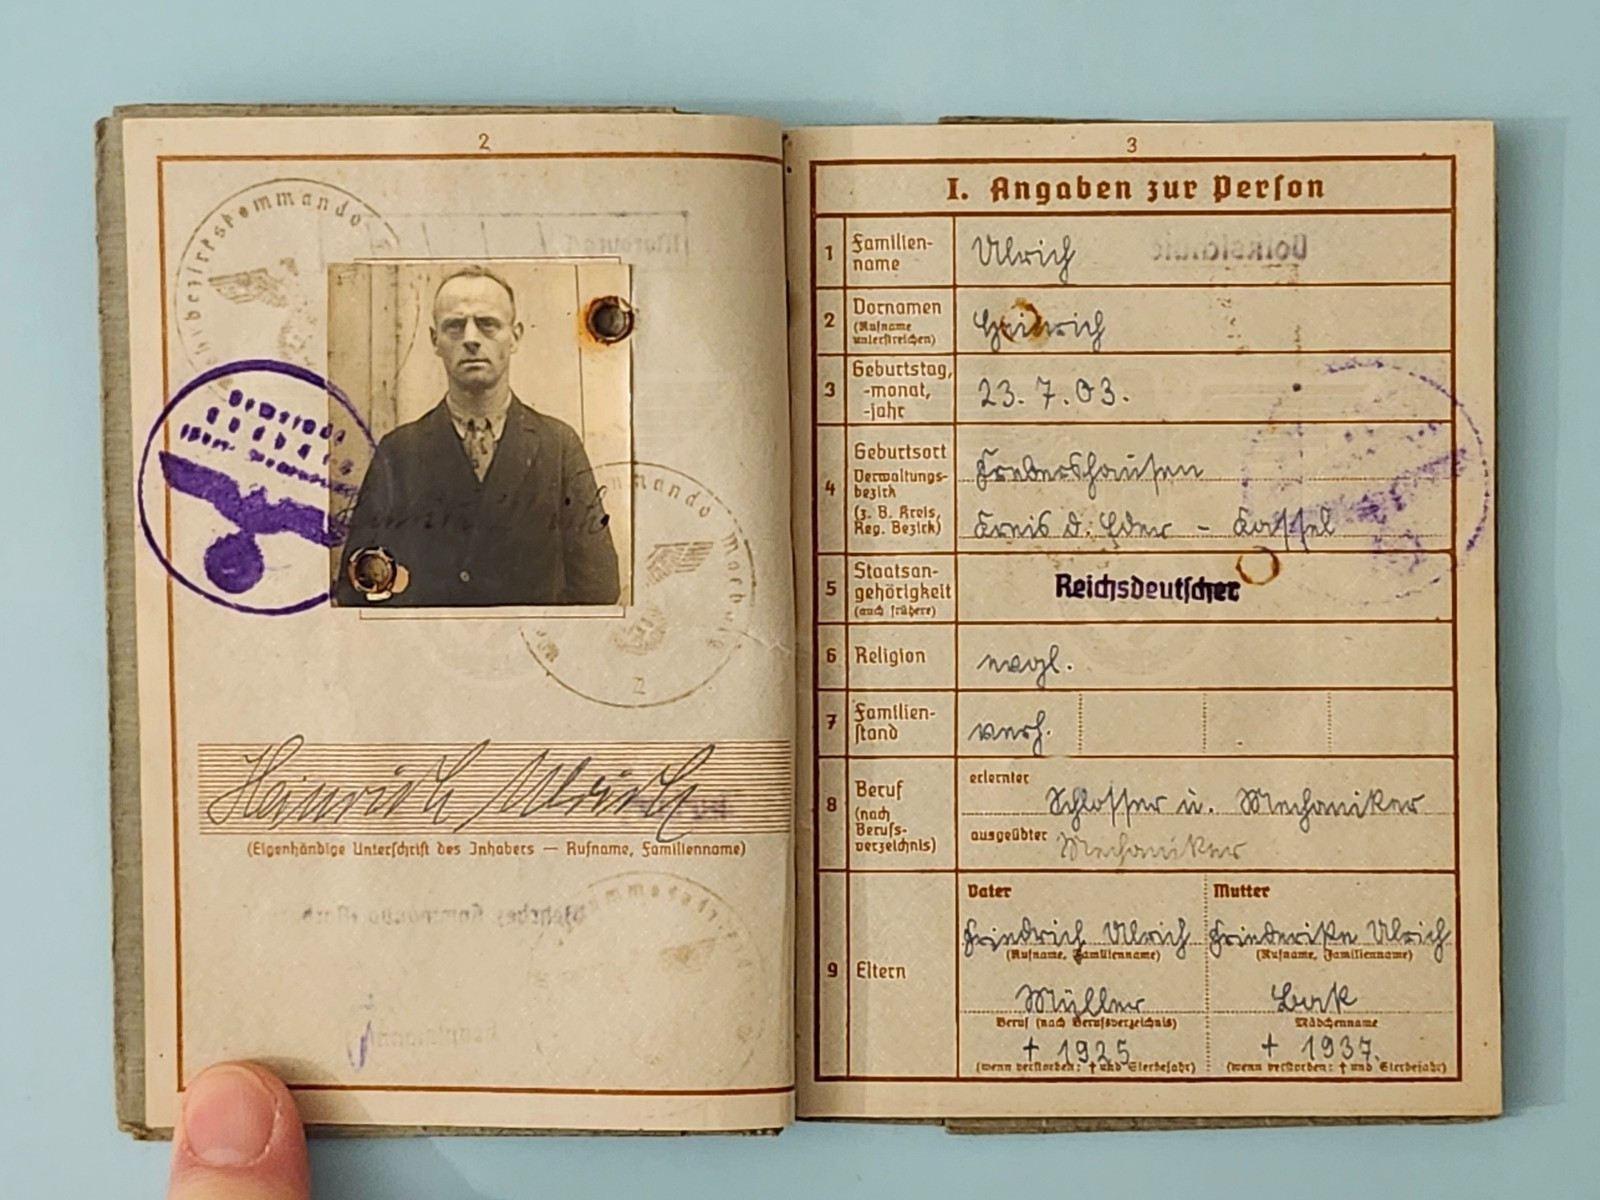 2
Wehrbezirkskommando
Kommando Marburg
Heinrich Ulrich
(Eigenhändige Unterschrift des Inhabers — Rufname, Familienname)
3
I. Angaben zur Person
1 Familien-
name
Ulrich
2 Vornamen
(Rufname
unterstreichen)
Heinrich
3 Geburtstag,
-monat,
-jahr
23. 7. 03.
4 Geburtsort
Verwaltungs-
bezirk
(z. B. Kreis,
Reg. Bezirk)
Kreis d. Eder - Kassel
5 Staatsan-
gehörigkeit
(auch frühere)
Reichsdeutscher
6 Religion
evgl.
7 Familien-
stand
verh.
8 Beruf
(nach
Berufs-
verzeichnis)
erlernter
Schlosser u. Mechaniker
ausgeübter
Mechaniker
9 Eltern
Vater
Friedrich Ulrich
(Rufname, Familienname)
Müller
Beruf (nach Berufsverzeichnis)
† 1925
(wenn verstorben: † und Sterbejahr)
Mutter
Friederike Ulrich
(Rufname, Familienname)
Mädchenname
† 1937.
(wenn verstorben: † und Sterbejahr)